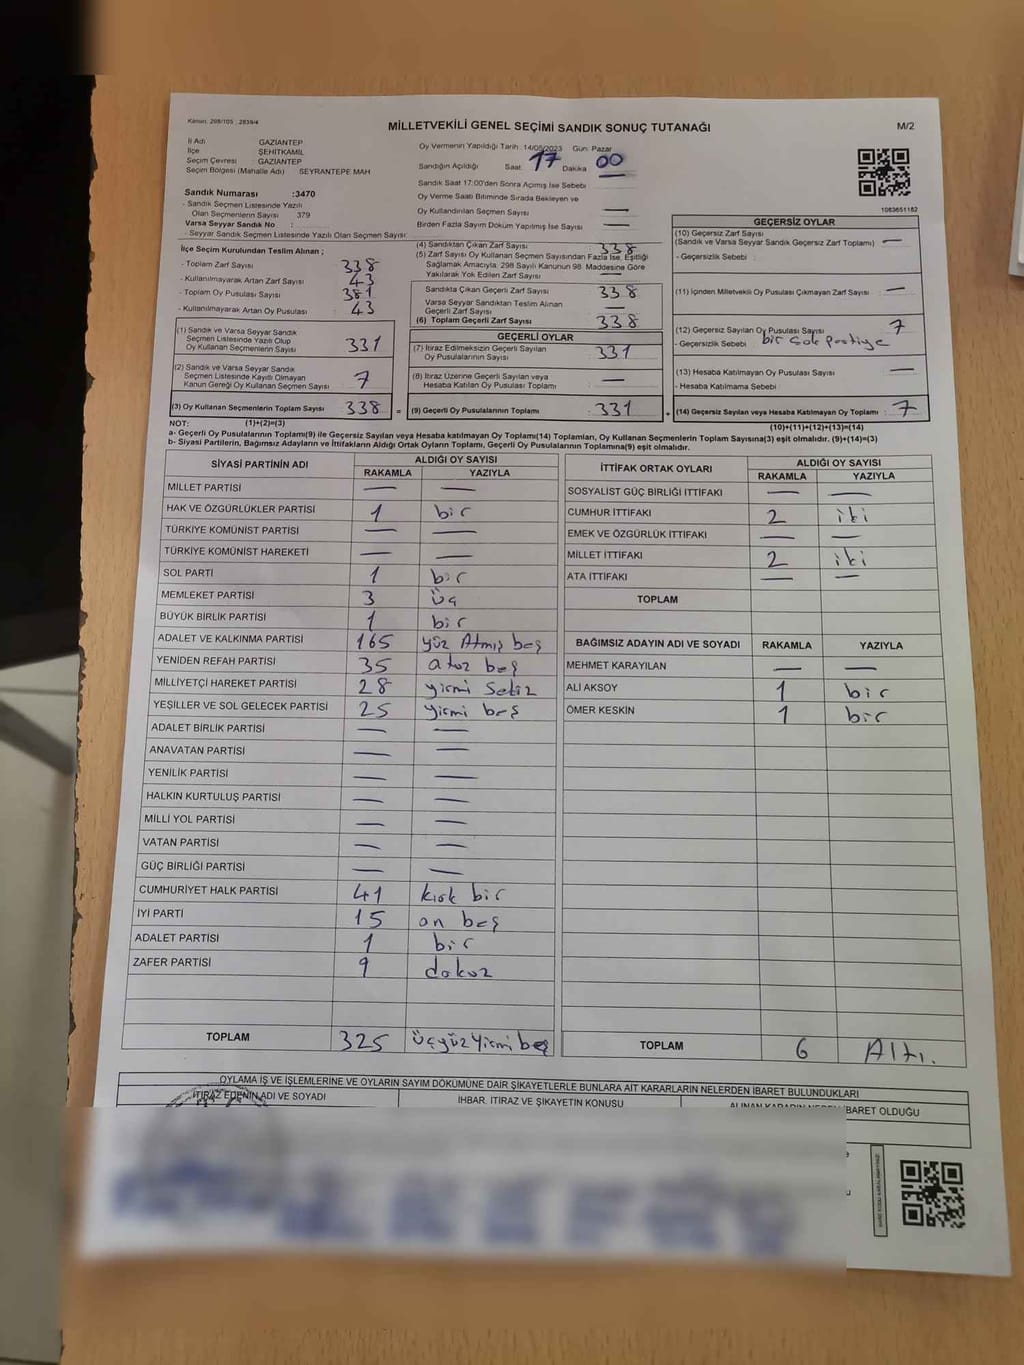 Kanun: 298/105 , 2839/4
MİLLETVEKİLİ GENEL SEÇİMİ SANDIK SONUÇ TUTANAĞI
M/2
İl Adı GAZİANTEP
İlçe ŞEHİTKAMİL
Seçim Çevresi GAZİANTEP
Seçim Bölgesi (Mahalle Adı) SEYRANTEPE MAH
Sandık Numarası :3470
- Sandık Seçmen Listesinde Yazılı
Olan Seçmenlerin Sayısı : 379
Varsa Seyyar Sandık No :
- Seyyar Sandık Seçmen Listesinde Yazılı Olan Seçmen Sayısı:
Oy Vermenin Yapıldığı Tarih : 14/05/2023 Gün: Pazar
Sandığın Açıldığı Saat: 17 Dakika 00
Sandık Saat 17:00'den Sonra Açımış İse Sebebi :
Oy Verme Saati Bitiminde Sırada Bekleyen ve
Oy Kullandırılan Seçmen Sayısı : —
Birden Fazla Sayım Döküm Yapılmış İse Sayısı : —
1083651182
İlçe Seçim Kurulundan Teslim Alınan ;
- Toplam Zarf Sayısı : 338
- Kullanılmayarak Artan Zarf Sayısı : 43
- Toplam Oy Pusulası Sayısı : 381
- Kullanılmayarak Artan Oy Pusulası : 43
(1) Sandık ve Varsa Seyyar Sandık
Seçmen Listesinde Yazılı Olup
Oy Kullanan Seçmenlerin Sayısı : 331
(2) Sandık ve Varsa Seyyar Sandık
Seçmen Listesinde Kayıtlı Olmayan
Kanun Gereği Oy Kullanan Seçmen Sayısı : 7
(3) Oy Kullanan Seçmenlerin Toplam Sayısı : 338 =
(4) Sandıktan Çıkan Zarf Sayısı : 338
(5) Zarf Sayısı Oy Kullanan Seçmen Sayısından Fazla İse, Eşitliği
Sağlamak Amacıyla; 298 Sayılı Kanunun 98. Maddesine Göre
Yakılarak Yok Edilen Zarf Sayısı : —
Sandıkta Çıkan Geçerli Zarf Sayısı : 338
Varsa Seyyar Sandıktan Teslim Alınan
Geçerli Zarf Sayısı :
(6) Toplam Geçerli Zarf Sayısı : 338
GEÇERLİ OYLAR
(7) İtiraz Edilmeksizin Geçerli Sayılan
Oy Pusulalarının Sayısı : 331
(8) İtiraz Üzerine Geçerli Sayılan veya
Hesaba Katılan Oy Pusulası Toplamı : —
(9) Geçerli Oy Pusulalarının Toplamı : 331 +
GEÇERSİZ OYLAR
(10) Geçersiz Zarf Sayısı
(Sandık ve Varsa Seyyar Sandık Geçersiz Zarf Toplamı) : —
- Geçersizlik Sebebi :
(11) İçinden Milletvekili Oy Pusulası Çıkmayan Zarf Sayısı : —
(12) Geçersiz Sayılan Oy Pusulası Sayısı : 7
- Geçersizlik Sebebi : bir çok partiye
(13) Hesaba Katılmayan Oy Pusulası Sayısı : —
- Hesaba Katılmama Sebebi :
(14) Geçersiz Sayılan veya Hesaba Katılmayan Oy Toplamı : 7
NOT: (1)+(2)=(3) (10)+(11)+(12)+(13)=(14)
a- Geçerli Oy Pusulalarının Toplamı(9) ile Geçersiz Sayılan veya Hesaba katılmayan Oy Toplamı(14) Toplamları, Oy Kullanan Seçmenlerin Toplam Sayısına(3) eşit olmalıdır. (9)+(14)=(3)
b- Siyasi Partilerin, Bağımsız Adayların ve İttifakların Aldığı Ortak Oyların Toplamı, Geçerli Oy Pusulalarının Toplamına(9) eşit olmalıdır.
SİYASİ PARTİNİN ADI ALDIĞI OY SAYISI
RAKAMLA YAZIYLA
MİLLET PARTİSİ — —
HAK VE ÖZGÜRLÜKLER PARTİSİ 1 bir
TÜRKİYE KOMÜNİST PARTİSİ — —
TÜRKİYE KOMÜNİST HAREKETİ — —
SOL PARTİ 1 bir
MEMLEKET PARTİSİ 3 üç
BÜYÜK BİRLİK PARTİSİ 1 bir
ADALET VE KALKINMA PARTİSİ 165 yüz Atmış beş
YENİDEN REFAH PARTİSİ 35 otuz beş
MİLLİYETÇİ HAREKET PARTİSİ 28 yirmi sekiz
YEŞİLLER VE SOL GELECEK PARTİSİ 25 yirmi beş
ADALET BİRLİK PARTİSİ — —
ANAVATAN PARTİSİ — —
YENİLİK PARTİSİ — —
HALKIN KURTULUŞ PARTİSİ — —
MİLLİ YOL PARTİSİ — —
VATAN PARTİSİ — —
GÜÇ BİRLİĞİ PARTİSİ — —
CUMHURİYET HALK PARTİSİ 41 kırk bir
İYİ PARTİ 15 on beş
ADALET PARTİSİ 1 bir
ZAFER PARTİSİ 9 dokuz
TOPLAM 325 üçyüz yirmi beş
İTTİFAK ORTAK OYLARI ALDIĞI OY SAYISI
RAKAMLA YAZIYLA
SOSYALİST GÜÇ BİRLİĞİ İTTİFAKI — —
CUMHUR İTTİFAKI 2 iki
EMEK VE ÖZGÜRLÜK İTTİFAKI — —
MİLLET İTTİFAKI 2 iki
ATA İTTİFAKI — —
TOPLAM
BAĞIMSIZ ADAYIN ADI VE SOYADI RAKAMLA YAZIYLA
MEHMET KARAYILAN — —
ALİ AKSOY 1 bir
ÖMER KESKİN 1 bir
TOPLAM 6 Altı.
OYLAMA İŞ VE İŞLEMLERİNE VE OYLARIN SAYIM DÖKÜMÜNE DAİR ŞİKAYETLERLE BUNLARA AİT KARARLARIN NELERDEN İBARET BULUNDUKLARI
İTİRAZ EDENİN ADI VE SOYADI
İHBAR, İTİRAZ VE ŞİKAYETİN KONUSU
ALINAN KARARIN NEDEN İBARET OLDUĞU